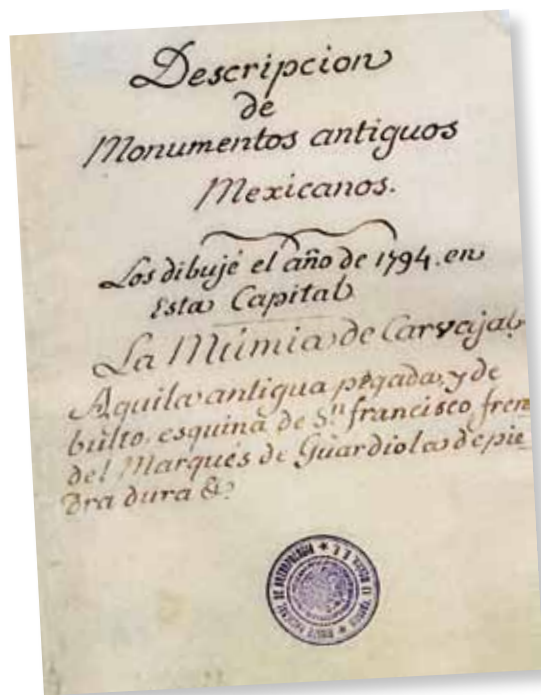 Descripcion
de
Monumentos antiguos
Mexicanos.
Los dibujé el año de 1794. en
Esta Capital
La Mumia de Carvajal,
Aquila antigua pegada, y de
bulto, esquina de Sn. francisco fren
del Marqués de Guardiola de pie
dra dura &.